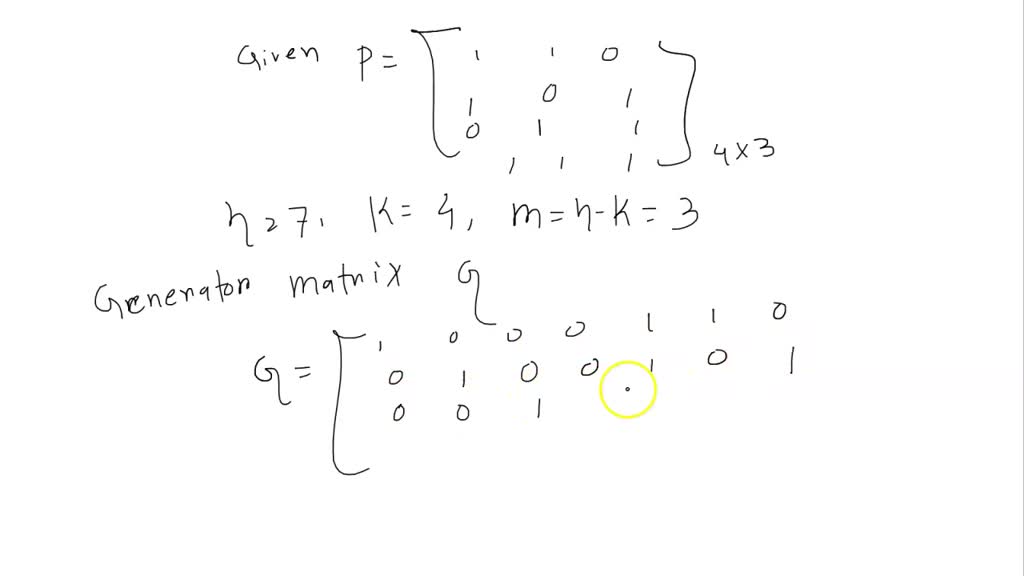 Given P = [ 1 1 0
1 0 1
0 1 1
1 1 1 ] 4×3
n = 7, K = 4, m = n-K = 3
Generator matrix G
G = [ 1 0 0 0 1 1 0
0 1 0 0 1 0 1
0 0 1